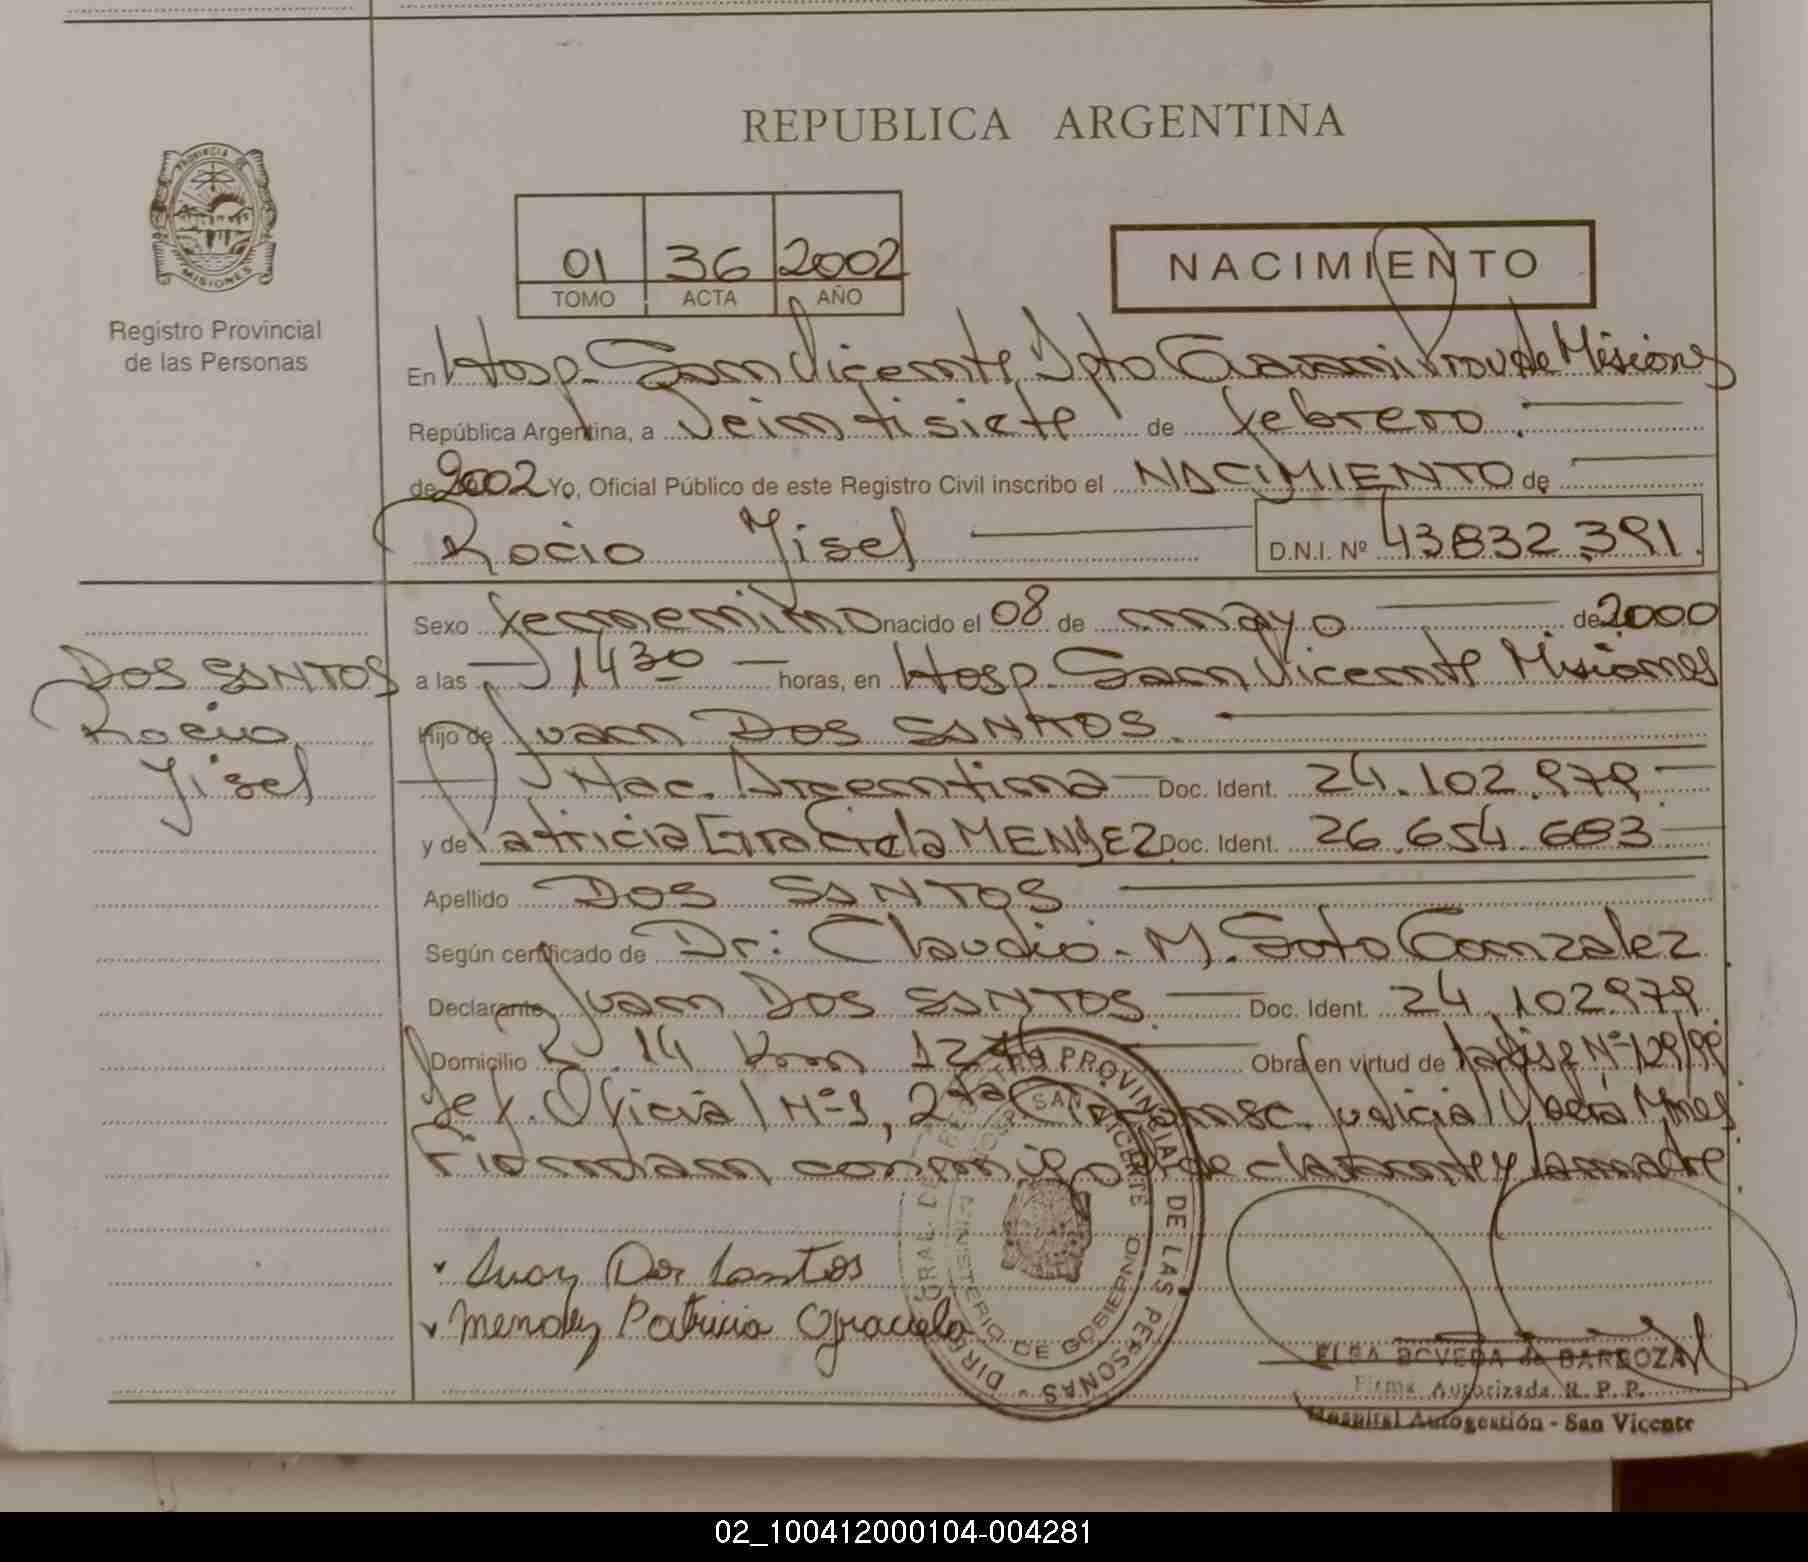 REPUBLICA ARGENTINA
PROVINCIA DE
MISIONES
Registro Provincial
de las Personas
01 36 2002
TOMO ACTA AÑO
NACIMIENTO
En Hosp. San Vicente, Dpto Guarani Prov de Misiones
República Argentina, a Veintisiete de febrero.
de 2002 Yo, Oficial Público de este Registro Civil inscribo el NACIMIENTO de
Rocio Yisel D.N.I. Nº 43832.391.
Sexo femenino nacido el 08 de mayo de 2000
DOS SANTOS
Rocio
Yisel
a las 14 30 horas, en Hosp. San Vicente Misiones
Hijo de Juan DOS SANTOS.
Nac. Argentina Doc. Ident. 24.102.979
y de Patricia Graciela MENDEZ Doc. Ident. 26.654.683
Apellido DOS SANTOS
Según certificado de Dr: Claudio - M. Soto Gonzalez
Declarante Juan DOS SANTOS Doc. Ident. 24.102979
Domicilio R. 14 Km Obra en virtud de Nº 129/99
Def. Oficial Nº 1, 2da Circunsc. Judicial Oberá Mnes
Firman conmigo declarante y la madre
Juan Dos Santos
Mendez Patricia Graciela
DIREC. GRAL. DE REGISTRO PROVINCIAL DE LAS PERSONAS
MINISTERIO DE GOBIERNO
SAN VICENTE
ELSA BOVEDA de BARBOZA
Firma Autorizada R. P. P.
Hospital Autogestión - San Vicente
02_100412000104-004281